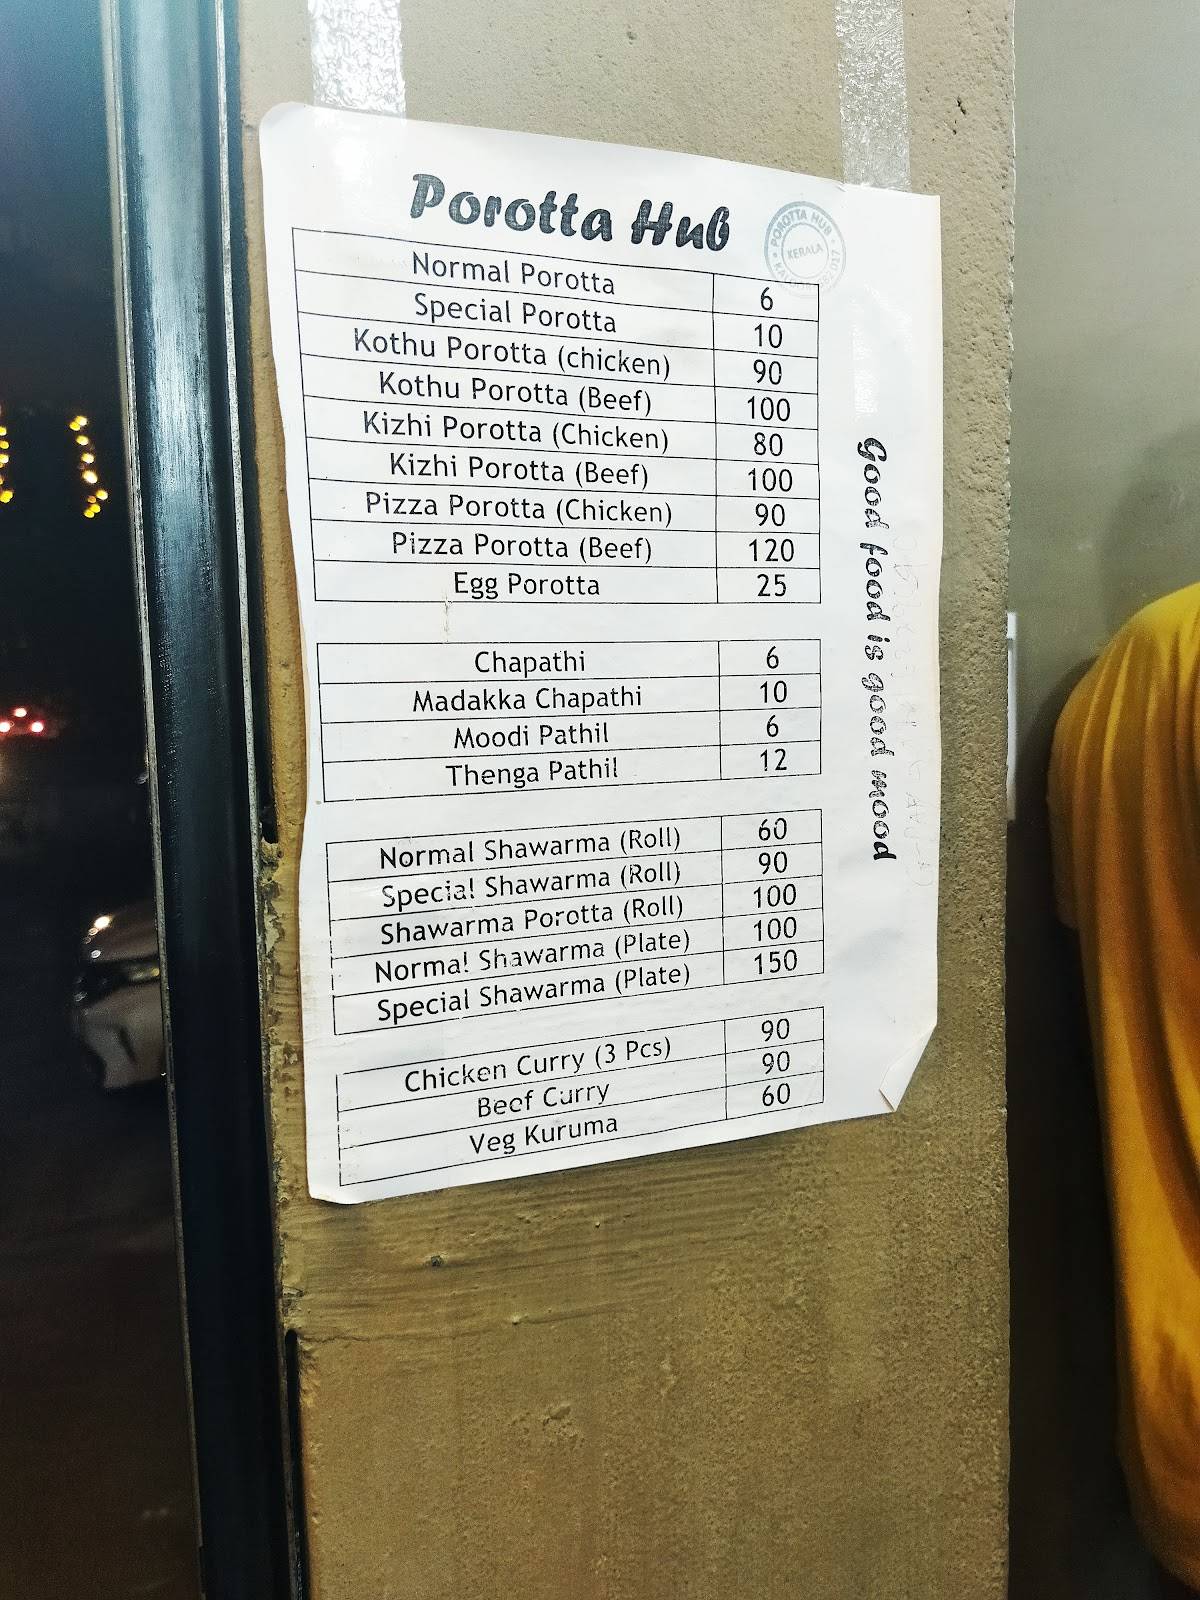 Porotta Hub
POROTTA HUB
KERALA
Normal Porotta 6
Special Porotta 10
Kothu Porotta (chicken) 90
Kothu Porotta (Beef) 100
Kizhi Porotta (Chicken) 80
Kizhi Porotta (Beef) 100
Pizza Porotta (Chicken) 90
Pizza Porotta (Beef) 120
Egg Porotta 25
Chapathi 6
Madakka Chapathi 10
Moodi Pathil 6
Thenga Pathil 12
Normal Shawarma (Roll) 60
Special Shawarma (Roll) 90
Shawarma Porotta (Roll) 100
Normal Shawarma (Plate) 100
Special Shawarma (Plate) 150
Chicken Curry (3 Pcs) 90
Beef Curry 90
Veg Kuruma 60
Good food is good mood